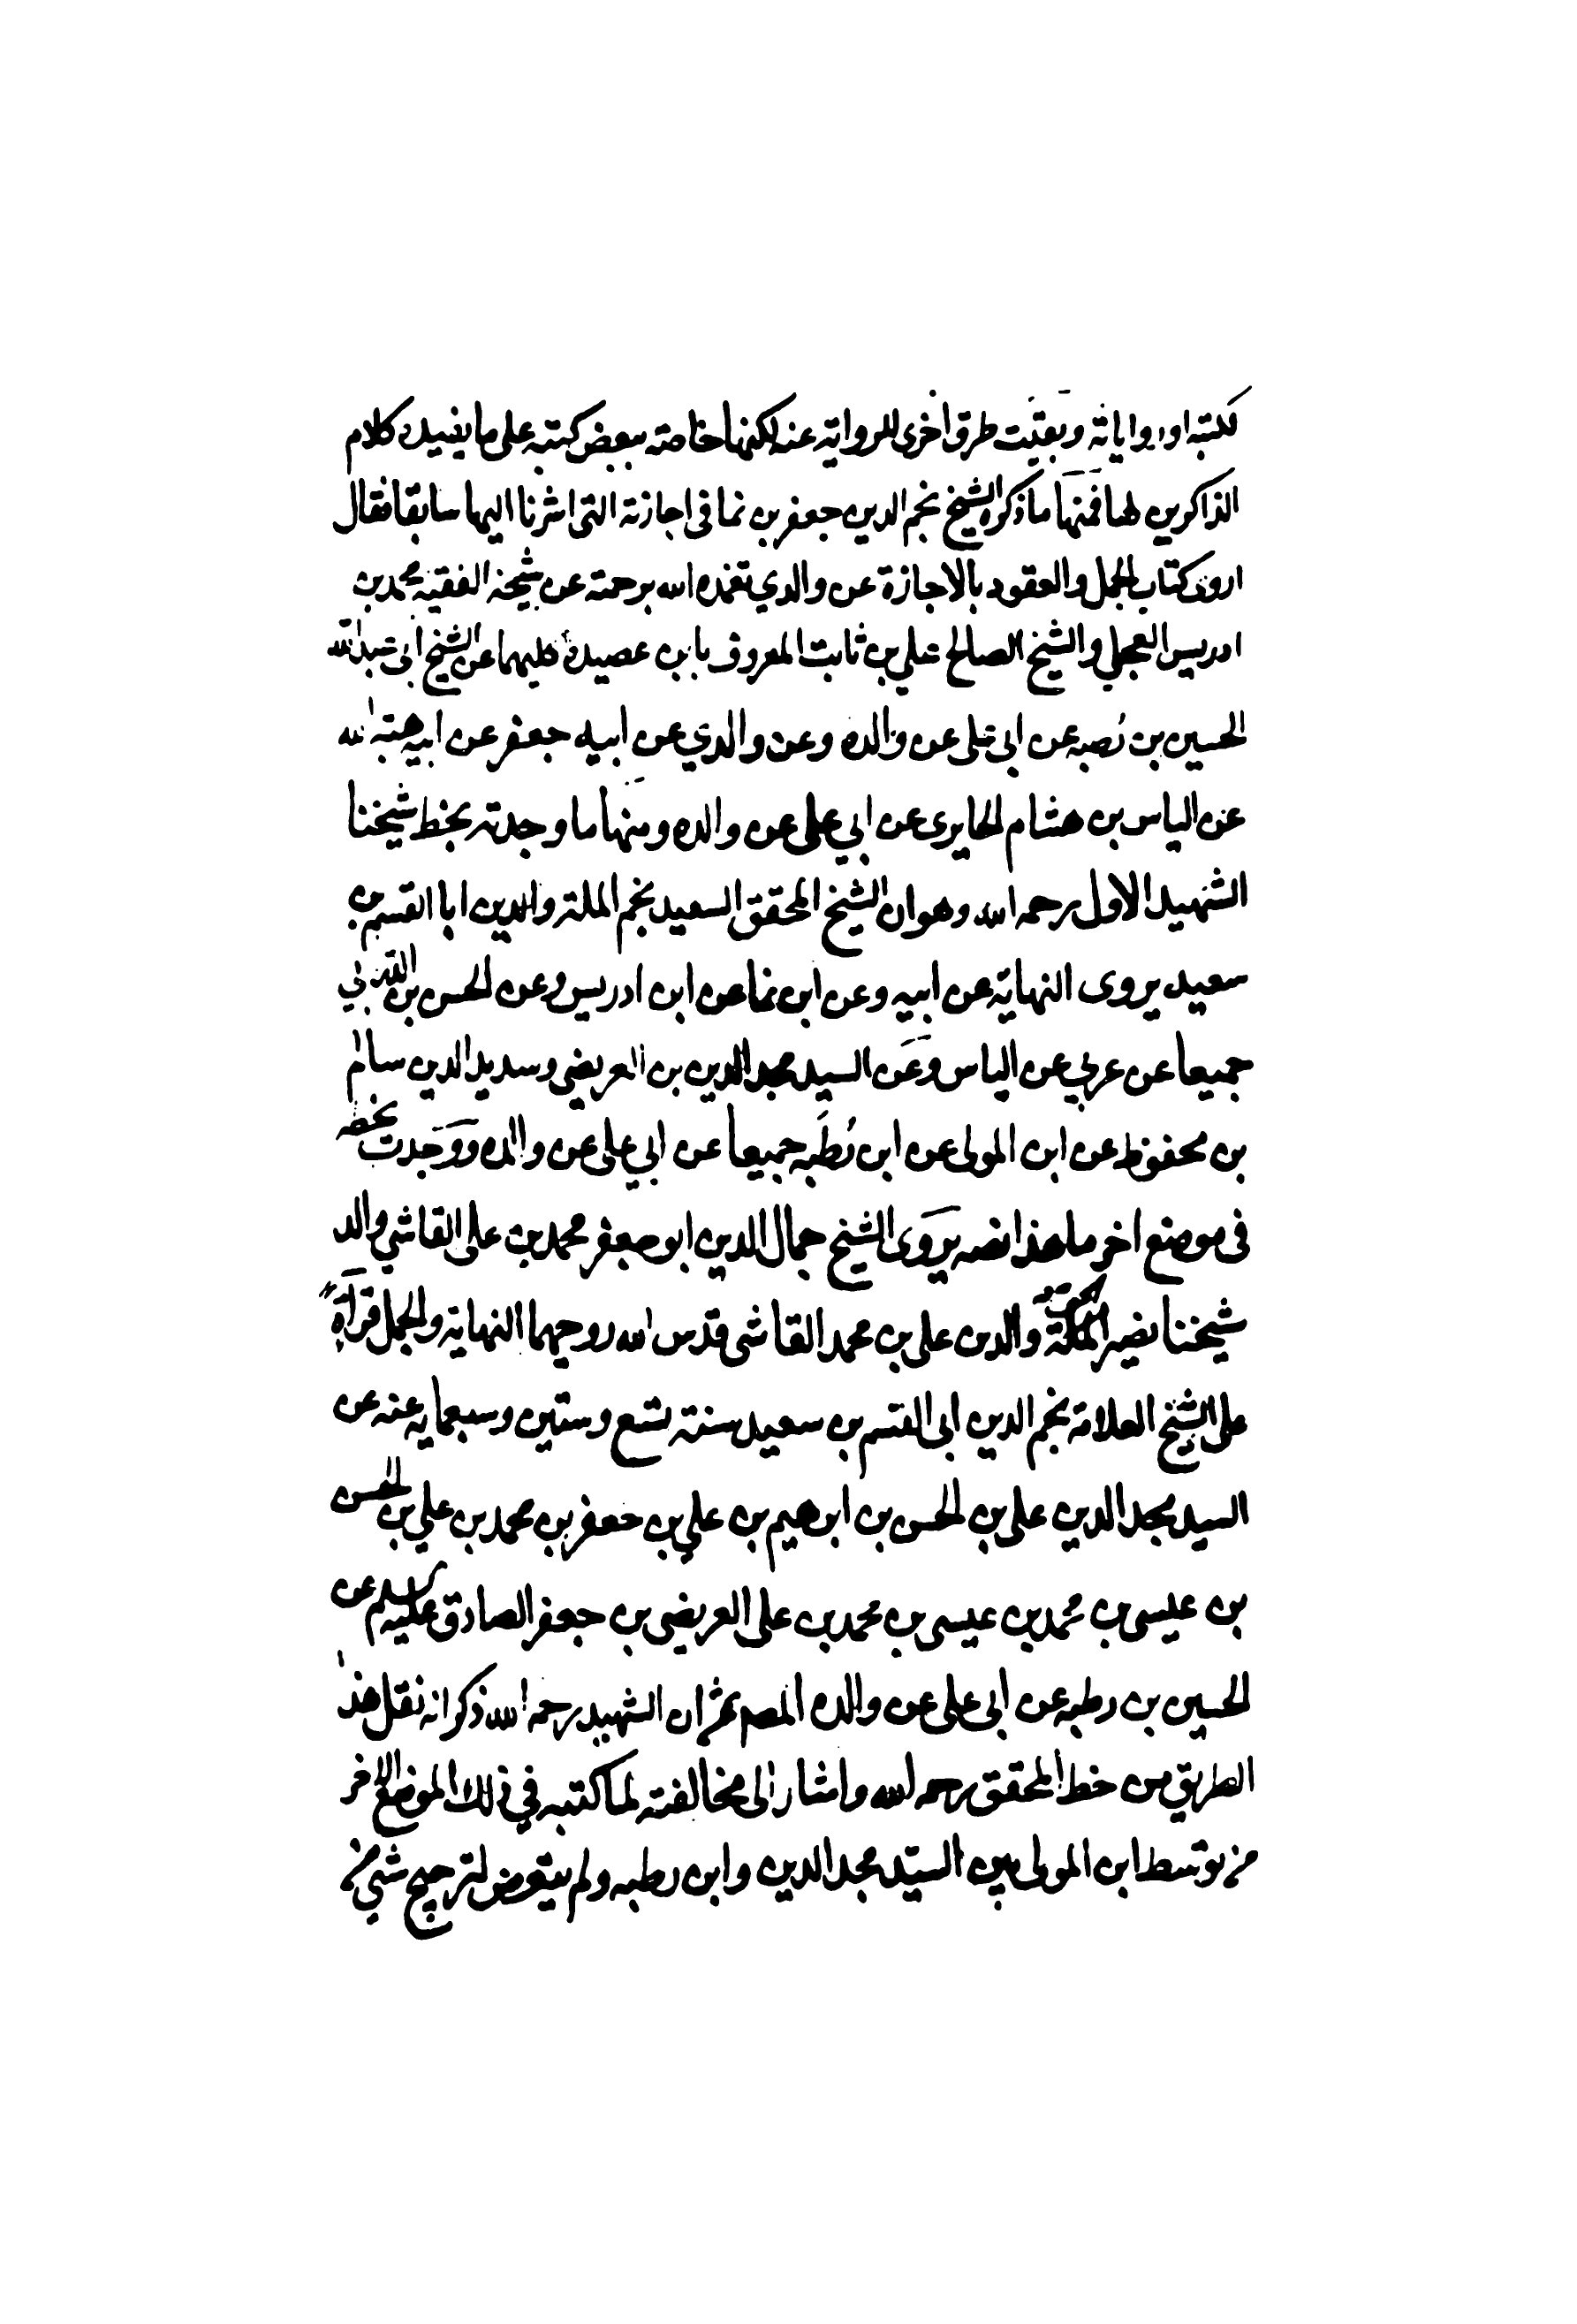 لكتبه او رواياته وبقيت طرق اخرى للرواية عنه لكنها خاصة ببعض كتبه على ما يفيده كلام
الذاكرين لها فمنها ما ذكره الشيخ نجم الدين جعفر بن نما في اجازته التي اشرنا اليها سابقا فقال
اروى كتاب الجمل والعقود بالاجازة عن والدي تغمده الله برحمته عن شيخه الفقيه محمد بن
ادريس العجلي والشيخ الصالح علي بن ثابت المعروف بابن عصيدة كليهما عن الشيخ ابي عبد الله
الحسين بن رُطبه عن ابي على عن والده وعن والدي عن ابيه جعفر عن ابيه هبة الله
عن الياس بن هشام الحايرى عن ابي على عن والده ومنها ما وجدته بخط شيخنا
الشهيد الاول رحمه الله وهو ان الشيخ المحقق السعيد نجم الملة والدين ابا القسم بن
سعيد يروى النهاية عن ابيه وعن ابن نما عن ابن ادريس وعن الحسن بن الدربي
جميعا عن عربي عن الياس وعن السيد مجد الدين بن العريضي وسديد الدين سالم
بن محفوظ عن ابن المولى عن ابن رُطَبه جميعا عن ابي على عن والده ووَجدت بخطه
فى موضع اخر ما هذا نصه يَروى الشيخ جمال الدين ابو جعفر محمد بن على القاشي والد
شيخنا نصير الملة والحق والدين على بن محمد القاشى قدس الله روحيهما النهاية والجمل قراءة
على الشيخ العلامة نجم الدين ابى القسم بن سعيد سنة تسع وستين وسبعمايه عنه عن
السيد مجد الدين على بن الحسن بن ابرهيم بن علي بن جعفر بن محمد بن علي بن الحسن
بن عيسى بن محمد بن عيسى بن محمد بن على العريضى بن جعفر الصادق عليه السلم عن
الحسين بن رطبه عن ابى على عن والده المصم ثم ان الشهيد رحمه الله ذكر انه نقل هذا
الطريق من خط المحقق رحمه الله واشار الى مخالفته لما كتبه في ذلك الموضع الاخر
من توسط ابن المولى بين السيّد مجد الدين وابن رطبه ولم يتعرض لترجيح شئ من